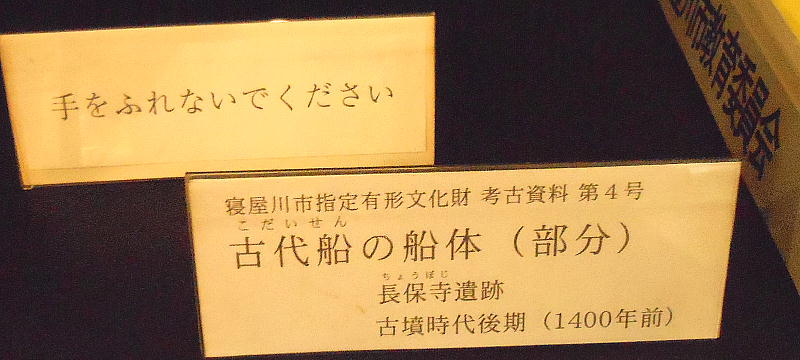 手をふれないでください
寝屋川市指定有形文化財 考古資料 第4号
こだいせん
古代船の船体（部分）
ちょうほじ
長保寺遺跡
古墳時代後期（1400年前）
川市教育委員会